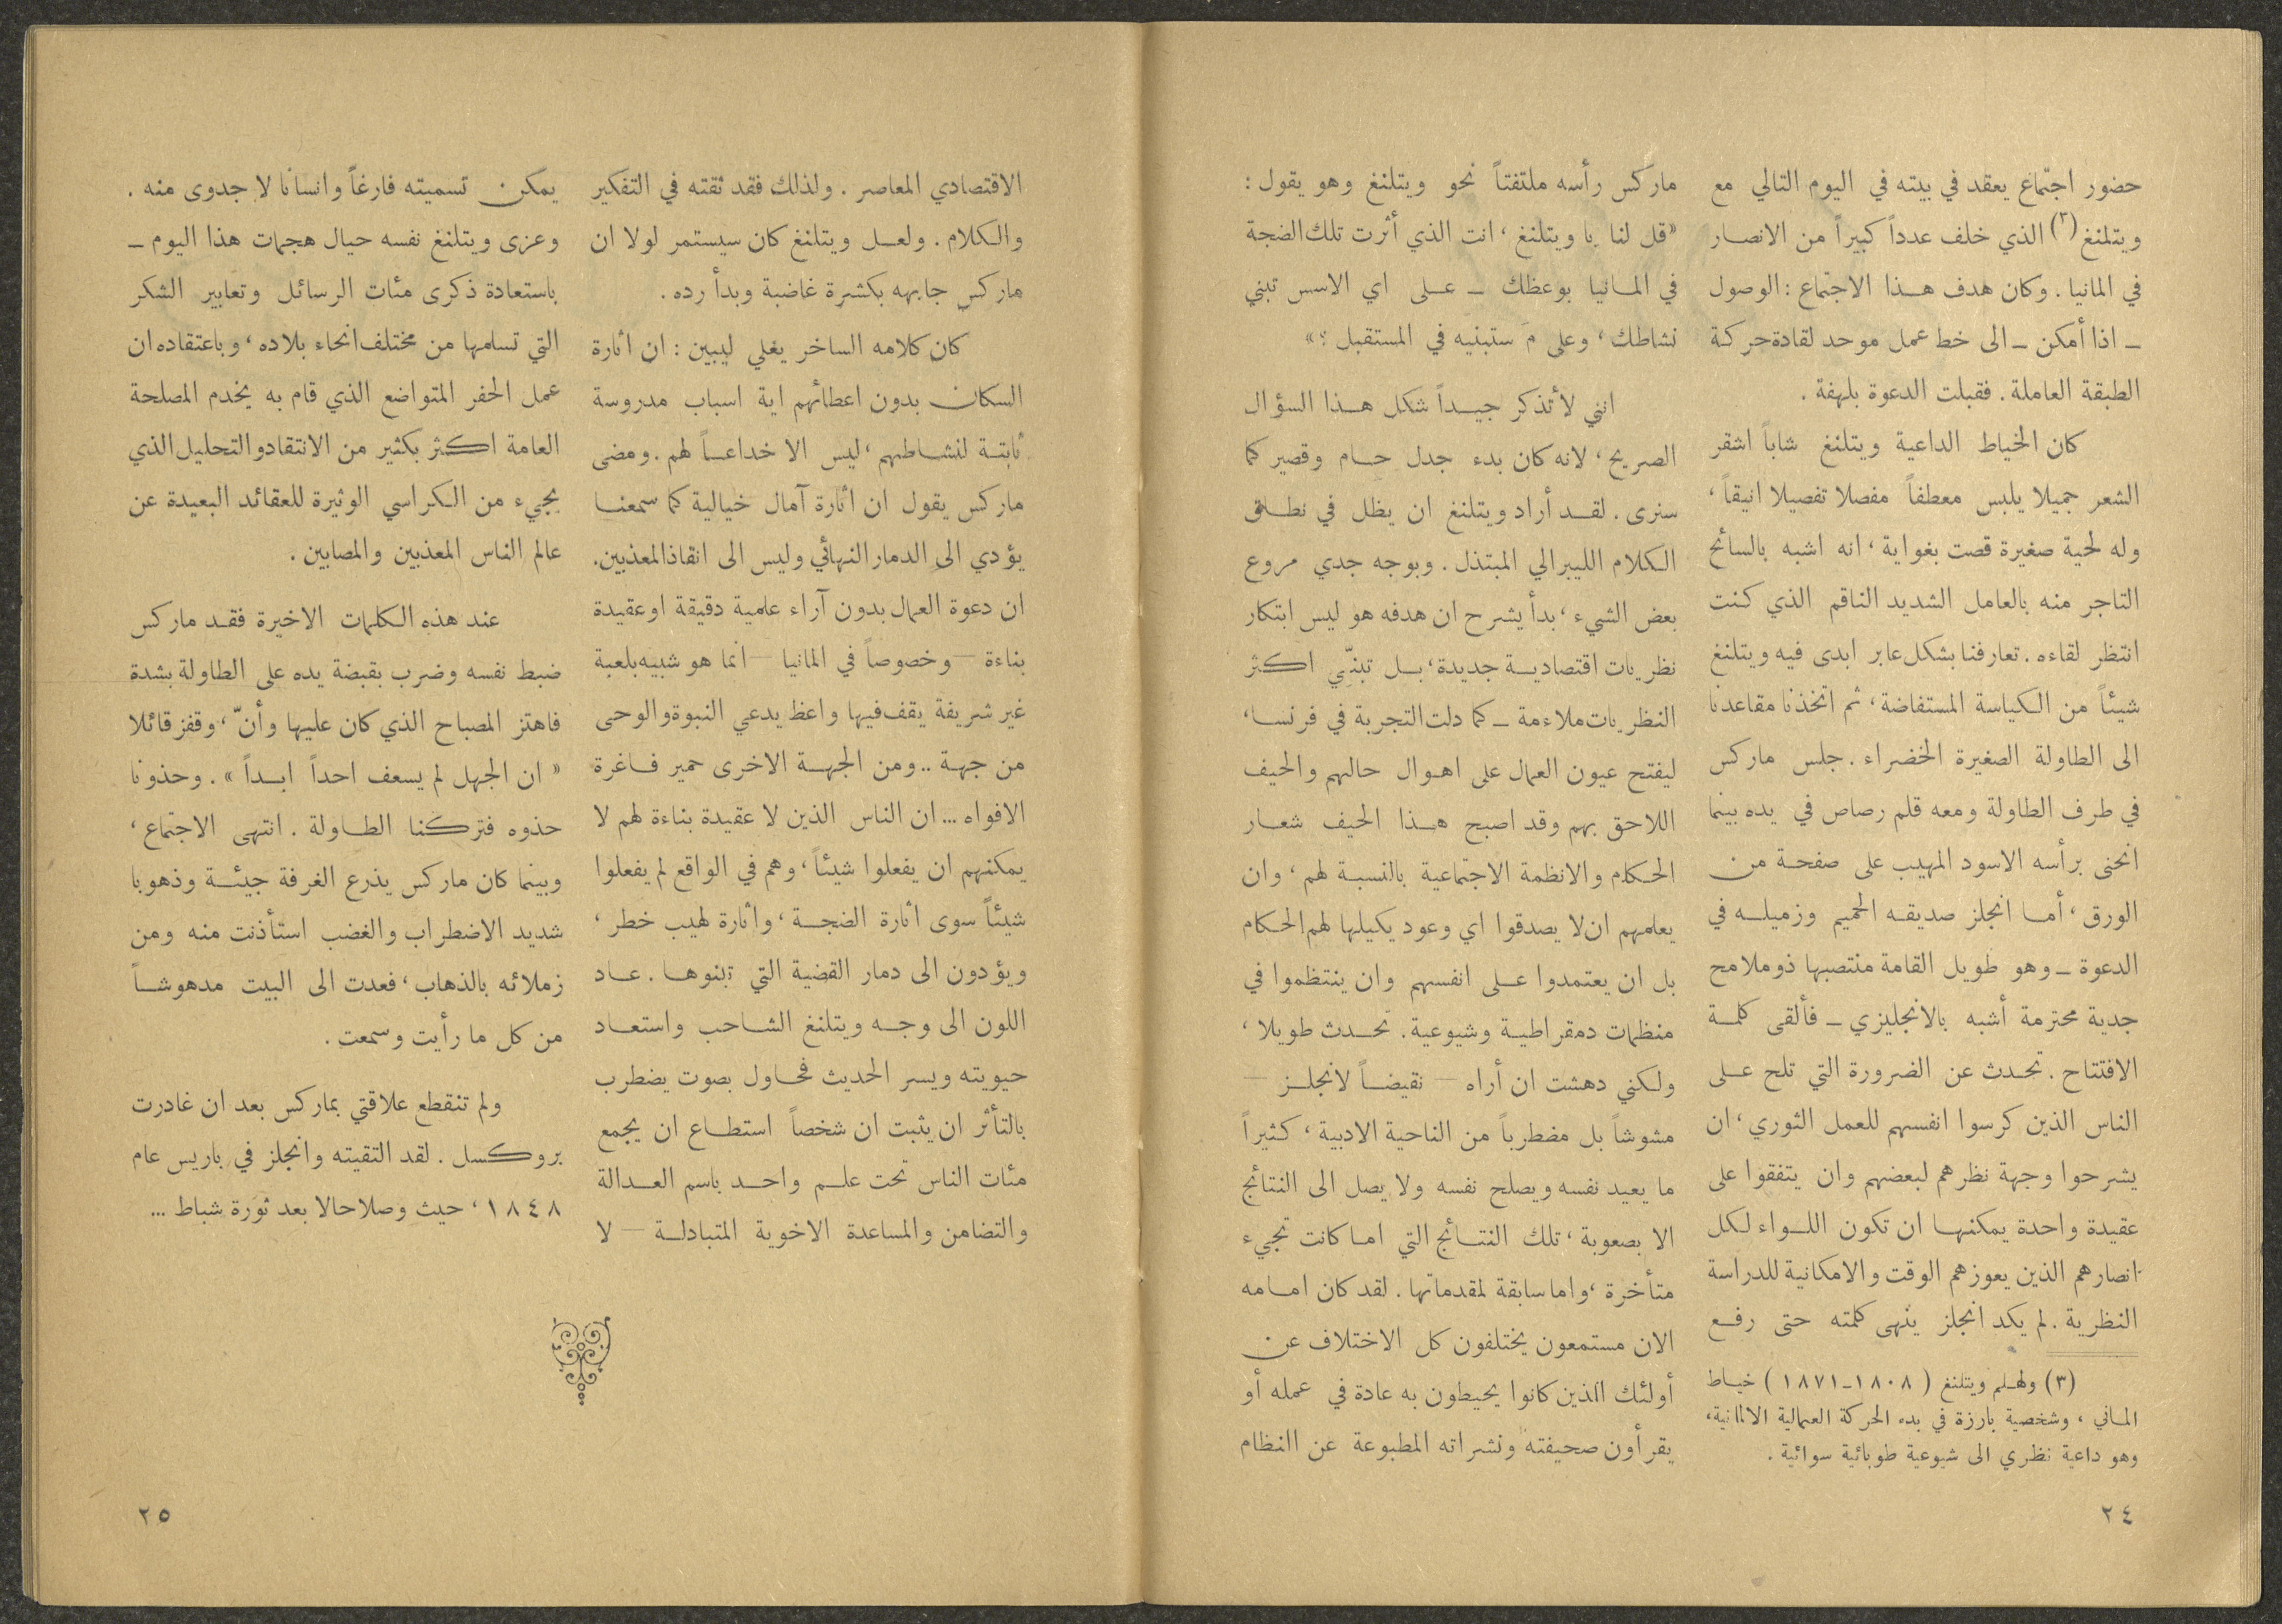 حضور اجتماع يعقد في بيته في اليوم التالي مع
ويتلنغ (٣) الذي خلف عدداً كبيراً من الانصار
في المانيا . وكان هدف هذا الاجتماع : الوصول
ـ اذا أمكن ـ الى خط عمل موحد لقادة حركة
الطبقة العاملة . فقبلت الدعوة بلهفة .
كان الخياط الداعية ويتلنغ شاباً اشقر
الشعر جميلا يلبس معطفاً مفصلا تفصيلا انيقاً ،
وله لحية صغيرة قصت بغواية ، انه اشبه بالسائح
التاجر منه بالعامل الشديد الناقم الذي كنت
انتظر لقاءه . تعارفنا بشكل عابر ابدى فيه ويتلنغ
شيئاً من الكياسة المستفاضة ، ثم اتخذنا مقاعدنا
الى الطاولة الصغيرة الخضراء . جلس ماركس
في طرف الطاولة ومعه قلم رصاص في يده بينما
انحنى برأسه الاسود المهيب على صفحة من
الورق ، أما انجلز صديقه الحميم وزميله في
الدعوة ـ وهو طويل القامة منتصبها ذو ملامح
جدية محترمة أشبه بالانجليزي ـ فألقى كلمة
الافتتاح . تحدث عن الضرورة التي تلح على
الناس الذين كرسوا انفسهم للعمل الثوري ، ان
يشرحوا وجهة نظرهم لبعضهم وان يتفقوا على
عقيدة واحدة يمكنها ان تكون اللواء لكل
انصارهم الذين يعوزهم الوقت والامكانية للدراسة
النظرية . لم يكد انجلز ينهى كلمته حتى رفع
(٣) ولهلم ويتلنغ ( ١٨٠٨ـ١٨٧١ ) خياط
الماني ، وشخصية بارزة في بدء الحركة العمالية الالمانية ،
وهو داعية نظري الى شيوعية طوبائية سوائية .
ماركس رأسه ملتفتاً نحو ويتلنغ وهو يقول :
« قل لنا يا ويتلنغ ، انت الذي أثرت تلك الضجة
في المانيا بوعظك ـ على اي الاسس تبني
نشاطك ، وعلى مَ ستبنيه في المستقبل ؟ »
انني لأتذكر جيداً شكل هذا السؤال
الصريح ، لانه كان بدء جدل حام وقصير كما
سنرى . لقد أراد ويتلنغ ان يظل في نطاق
الكلام الليبرالي المبتذل . وبوجه جدي مروع
بعض الشيء ، بدأ يشرح ان هدفه هو ليس ابتكار
نظريات اقتصادية جديدة ، بل تبنّي اكثر
النظريات ملاءمة ـ كما دلت التجربة في فرنسا ،
ليفتح عيون العمال على اهوال حالهم والحيف
اللاحق بهم وقد اصبح هذا الحيف شعار
الحكام والانظمة الاجتماعية بالنسبة لهم ، وان
يعلمهم ان لا يصدقوا اي وعود يكيلها لهم الحكام
بل ان يعتمدوا على انفسهم وان ينتظموا في
منظمات دمقراطية وشيوعية . تحدث طويلا ،
ولكني دهشت ان أراه — نقيضاً لانجلز —
مشوشاً بل مضطرباً من الناحية الادبية ، كثيراً
ما يعيد نفسه ويصلح نفسه ولا يصل الى النتائج
الا بصعوبة ، تلك النتائج التي اما كانت تجيء
متأخرة ، واما سابقة لمقدماتها . لقد كان امامه
الان مستمعون يختلفون كل الاختلاف عن
أولئك الذين كانوا يحيطون به عادة في عمله أو
يقرأون صحيفته ونشراته المطبوعة عن النظام
٢٤
الاقتصادي المعاصر . ولذلك فقد ثقته في التفكير
والكلام . ولعل ويتلنغ كان سيستمر لولا ان
ماركس جابهه بكشرة غاضبة وبدأ رده .
كان كلامه الساخر يغلي ليبين : ان اثارة
السكان بدون اعطائهم اية اسباب مدروسة
ثابتة لنشاطهم ، ليس الا خداعاً لهم . ومضى
ماركس يقول ان اثارة آمال خيالية كما سمعنا
يؤدي الى الدمار النهائي وليس الى انقاذ المعذبين.
ان دعوة العمال بدون آراء علمية دقيقة او عقيدة
بناءة — وخصوصاً في المانيا — انما هو شبيه بلعبة
غير شريفة يقف فيها واعظ يدعي النبوة والوحى
من جهة .. ومن الجهة الاخرى حمير فاغرة
الافواه ... ان الناس الذين لا عقيدة بناءة لهم لا
يمكنهم ان يفعلوا شيئاً ، وهم في الواقع لم يفعلوا
شيئاً سوى اثارة الضجة ، واثارة لهيب خطر ،
ويؤدون الى دمار القضية التي تبنوها . عاد
اللون الى وجه ويتلنغ الشاحب واستعاد
حيويته ويسر الحديث فحاول بصوت يضطرب
بالتأثر ان يثبت ان شخصاً استطاع ان يجمع
مئات الناس تحت علم واحد باسم العدالة
والتضامن والمساعدة الاخوية المتبادلة — لا
يمكن تسميته فارغاً وانسانا لا جدوى منه .
وعزى ويتلنغ نفسه حيال هجمات هذا اليوم ـ
باستعادة ذكرى مئات الرسائل وتعابير الشكر
التي تسلمها من مختلف انحاء بلاده ، وباعتقاده ان
عمل الحفر المتواضع الذي قام به يخدم المصلحة
العامة اكثر بكثير من الانتقاد والتحليل الذي
يجيء من الكراسي الوثيرة للعقائد البعيدة عن
عالم الناس المعذبين والمصابين .
عند هذه الكلمات الاخيرة فقد ماركس
ضبط نفسه وضرب بقبضة يده على الطاولة بشدة
فاهتز المصباح الذي كان عليها وأنّ ، وقفز قائلا
« ان الجهل لم يسعف احداً ابداً » . وحذونا
حذوه فتركنا الطاولة . انتهى الاجتماع ،
وبينما كان ماركس يذرع الغرفة جيئة وذهوبا
شديد الاضطراب والغضب استأذنت منه ومن
زملائه بالذهاب ، فعدت الى البيت مدهوشاً
من كل ما رأيت وسمعت .
ولم تنقطع علاقتي بماركس بعد ان غادرت
بروكسل . لقد التقيته وانجلز في باريس عام
١٨٤٨ ، حيث وصلا حالا بعد ثورة شباط ...
٢٥